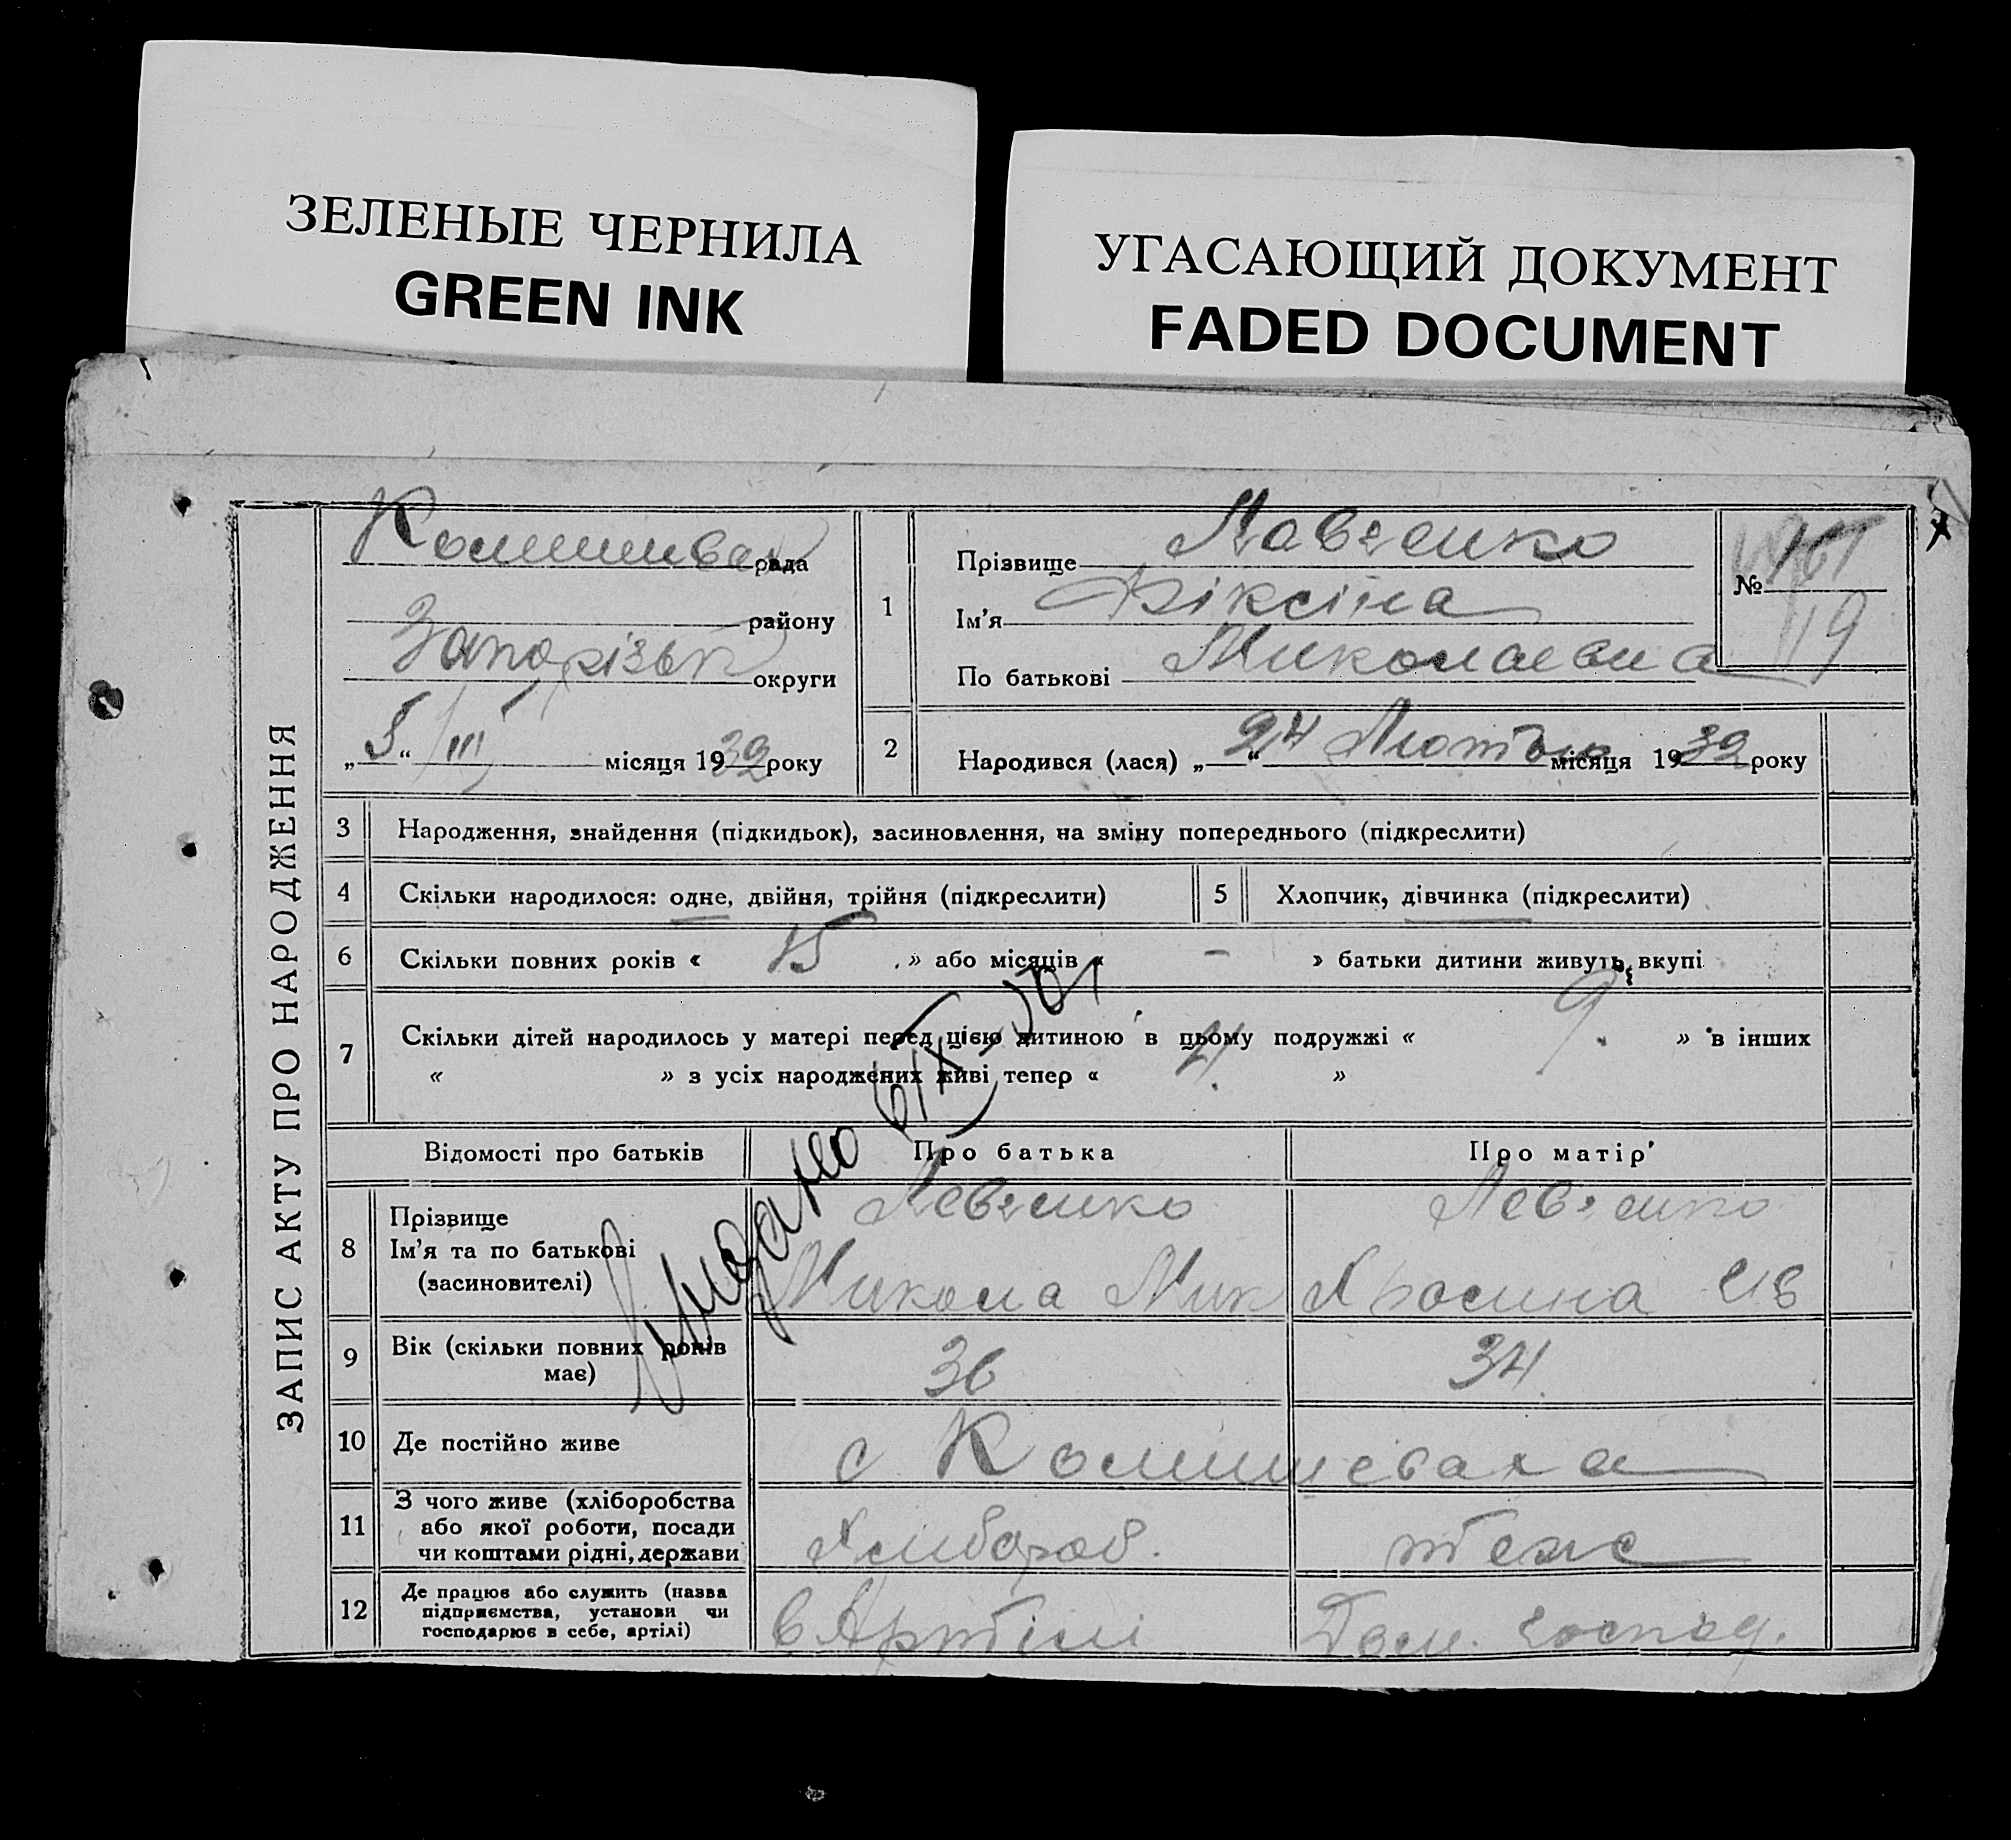 ЗЕЛЕНЫЕ ЧЕРНИЛА
GREEN INK
УГАСАЮЩИЙ ДОКУМЕНТ
FADED DOCUMENT
ЗАПИС АКТУ ПРО НАРОДЖЕННЯ
рада
району
Запорізьк округи
„5“ III місяця 1932 року
1
Прізвище
Ім'я
По батькові Миколаевна
№
19
2
Народився (лася) „24“ місяця 1932 року
3 Народження, знайдення (підкидьок), засиновлення, на зміну попереднього (підкреслити)
4 Скільки народилося: одне, двійня, трійня (підкреслити)
5 Хлопчик, дівчинка (підкреслити)
6 Скільки повних років « 15 » або місяців « – » батьки дитини живуть вкупі
7 Скільки дітей народилось у матері перед цією дитиною в цьому подружжі « 9. » в інших
« » з усіх народжених живі тепер « 4. »
Відомості про батьків Про батька Про матір
8 Прізвище
Ім'я та по батькові
(засновителі)
Микола Мик
9 Вік (скільки повних років
має)
36 34
10 Де постійно живе с Комишеваха
11 З чого живе (хліборобства
або якої роботи, посади
чи коштами рідні, держави
Хлибороб. теж
12 Де працює або служить (назва
підприємства, установи чи
господарює в себе, артілі)
в Артілі Дом. господ.